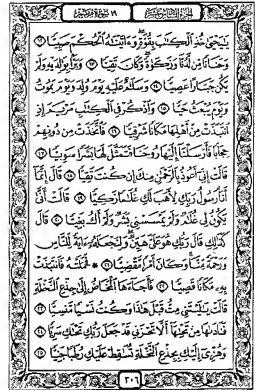 الجزء السادس عشر ١٩ سورة مريم
يَٰيَحْيَىٰ خُذِ ٱلْكِتَٰبَ بِقُوَّةٍ وَءَاتَيْنَٰهُ ٱلْحُكْمَ صَبِيًّا ١٢
وَحَنَانًا مِّن لَّدُنَّا وَزَكَوٰةً وَكَانَ تَقِيًّا ١٣ وَبَرًّۢا بِوَٰلِدَيْهِ وَلَمْ
يَكُن جَبَّارًا عَصِيًّا ١٤ وَسَلَٰمٌ عَلَيْهِ يَوْمَ وُلِدَ وَيَوْمَ يَمُوتُ
وَيَوْمَ يُبْعَثُ حَيًّا ١٥ وَٱذْكُرْ فِى ٱلْكِتَٰبِ مَرْيَمَ إِذِ
ٱنتَبَذَتْ مِنْ أَهْلِهَا مَكَانًا شَرْقِيًّا ١٦ فَٱتَّخَذَتْ مِن دُونِهِمْ
حِجَابًا فَأَرْسَلْنَآ إِلَيْهَا رُوحَنَا فَتَمَثَّلَ لَهَا بَشَرًا سَوِيًّا ١٧
قَالَتْ إِنِّىٓ أَعُوذُ بِٱلرَّحْمَٰنِ مِنكَ إِن كُنتَ تَقِيًّا ١٨ قَالَ إِنَّمَآ
أَنَا۠ رَسُولُ رَبِّكِ لِأَهَبَ لَكِ غُلَٰمًا زَكِيًّا ١٩ قَالَتْ أَنَّىٰ
يَكُونُ لِى غُلَٰمٌ وَلَمْ يَمْسَسْنِى بَشَرٌ وَلَمْ أَكُ بَغِيًّا ٢٠ قَالَ
كَذَٰلِكِ قَالَ رَبُّكِ هُوَ عَلَىَّ هَيِّنٌ وَلِنَجْعَلَهُۥٓ ءَايَةً لِّلنَّاسِ
وَرَحْمَةً مِّنَّا وَكَانَ أَمْرًا مَّقْضِيًّا ٢١ ۞ فَحَمَلَتْهُ فَٱنتَبَذَتْ
بِهِۦ مَكَانًا قَصِيًّا ٢٢ فَأَجَآءَهَا ٱلْمَخَاضُ إِلَىٰ جِذْعِ ٱلنَّخْلَةِ
قَالَتْ يَٰلَيْتَنِى مِتُّ قَبْلَ هَٰذَا وَكُنتُ نَسْيًا مَّنسِيًّا ٢٣
فَنَادَىٰهَا مِن تَحْتِهَآ أَلَّا تَحْزَنِى قَدْ جَعَلَ رَبُّكِ تَحْتَكِ سَرِيًّا ٢٤
وَهُزِّىٓ إِلَيْكِ بِجِذْعِ ٱلنَّخْلَةِ تُسَٰقِطْ عَلَيْكِ رُطَبًا جَنِيًّا ٢٥
٣٠٦